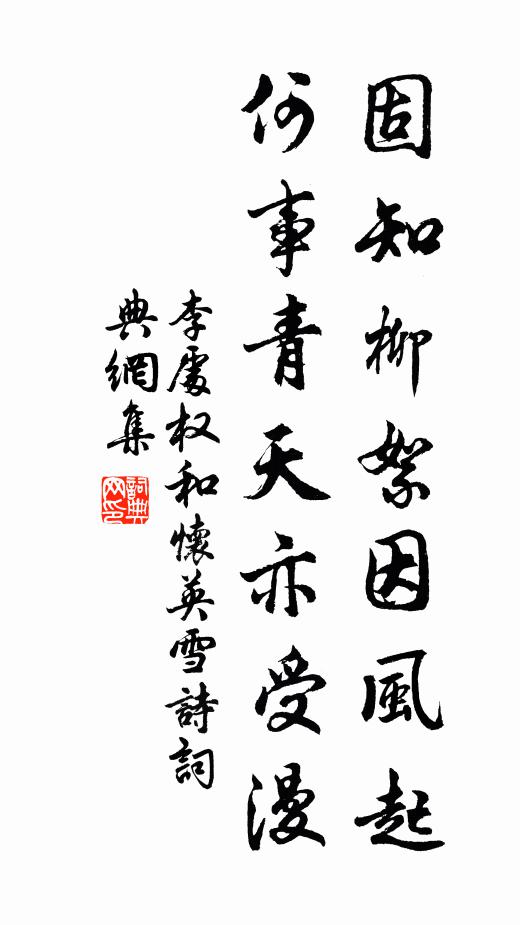 固知柳絮因風起
何事青天亦受漫
李處权和懷英雪詩詞
典網集
詞典
网印